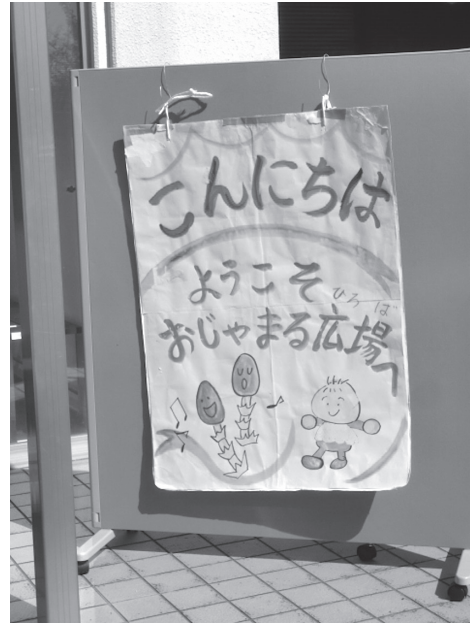 こんにちは
ようこそ
ひろば
おじゃまる広場へ